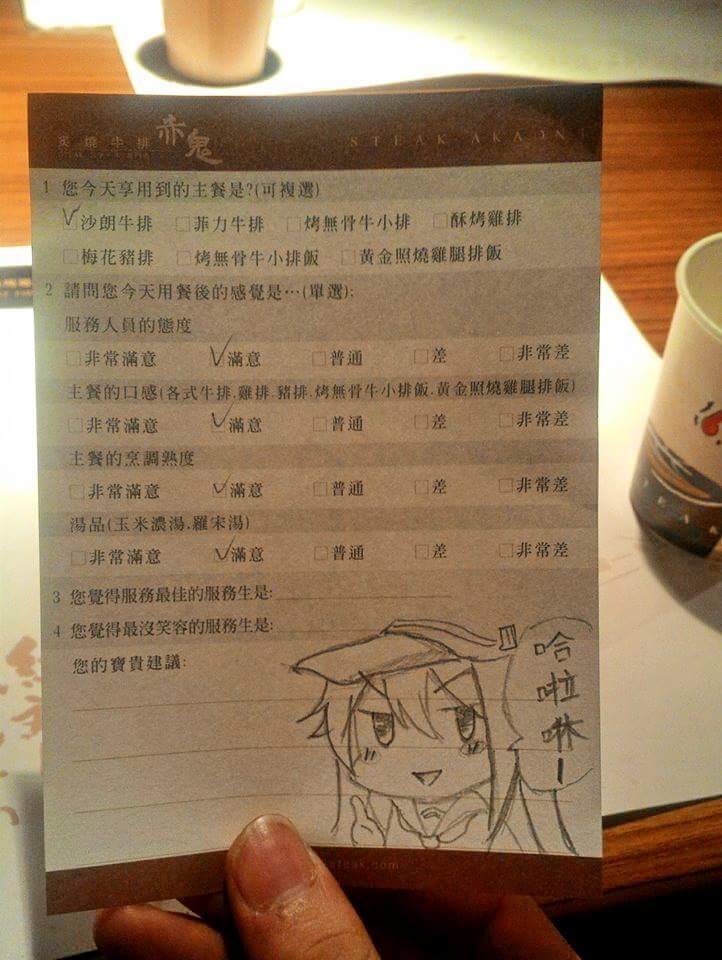 炙燒牛排 赤鬼 STEAK AKAONI
1 您今天享用到的主餐是?(可複選)
沙朗牛排 菲力牛排 烤無骨牛小排 酥烤雞排
梅花豬排 烤無骨牛小排飯 黃金照燒雞腿排飯
2 請問您今天用餐後的感覺是…(單選):
服務人員的態度
非常滿意 滿意 普通 差 非常差
主餐的口感(各式牛排.雞排.豬排.烤無骨牛小排飯.黃金照燒雞腿排飯)
非常滿意 滿意 普通 差 非常差
主餐的烹調熟度
非常滿意 滿意 普通 差 非常差
湯品(玉米濃湯.羅宋湯)
非常滿意 滿意 普通 差 非常差
3 您覺得服務最佳的服務生是:
4 您覺得最沒笑容的服務生是:
您的寶貴建議:
哈啦啉ー